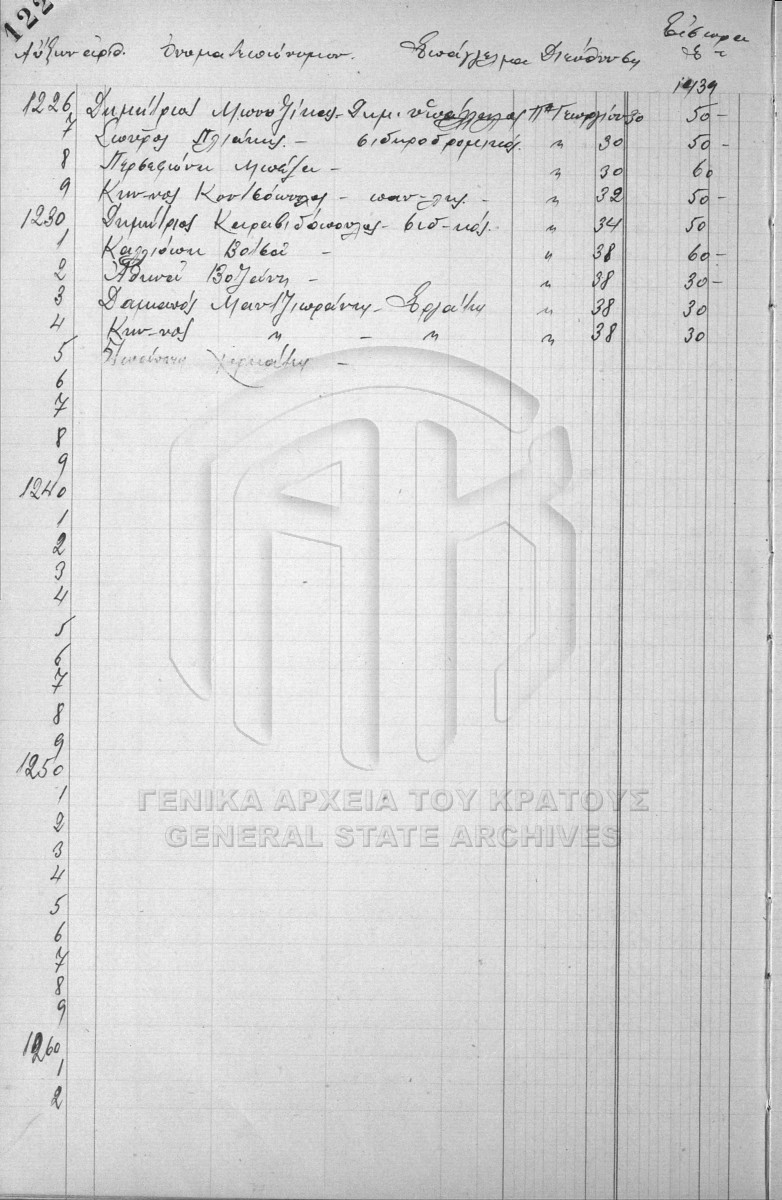 122
Αὔξων ἀριθ. Ὀνοματεπώνυμον. Ἐπάγγελμα Διεύθυνσις Εἰσφορά
1939
1226 Δημήτριος Μπουζίκας - Δημ. ὑπάλληλος Πλ Γεωργίου 30 50 -
7 Σπύρος Πλιάκης. - σιδηροδρομικός. " 30 50 -
8 Περσεφώνη Μπέζα - " 30 60
9 Κων-νος Κουτσόπουλος - παν-λης. - " 32 50 -
1230 Δημήτριος Καραβιδόπουλος - σιδ-κός. " 34 50
1 Καλλιόπη Βότσου - " 38 60 -
2 Ἀθηνᾶ Βοζάνη - " 38 30 -
3 Δαμιανός Μαντζιωράνης - Ἐργάτης " 38 30
4 Κων-νος " - " " 38 30
5
6
7
8
9
1240
1
2
3
4
5
6
7
8
9
1250
1
2
3
4
5
6
7
8
9
1260
1
2
ΓΕΝΙΚΑ ΑΡΧΕΙΑ ΤΟΥ ΚΡΑΤΟΥΣ
GENERAL STATE ARCHIVES